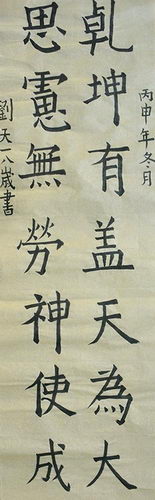 丙申年冬月
乾坤有盖天為大
思憲無勞神使成
劉天八歲書